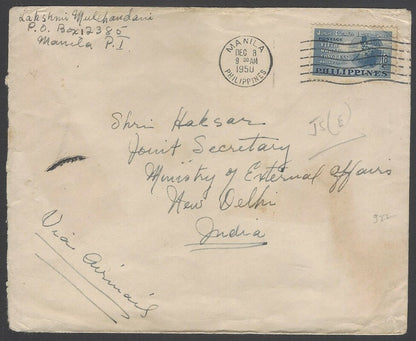 Lakshmi Mulchandani
P.O. Box 12385
Manila P.I
MANILA
DEC 8
9 30 AM
1950
PHILIPPINES
PHILIPPINES
JS(E)
Shri Haksar
Joint Secretary
Ministry of External Affairs
New Delhi
India
Via Airmail